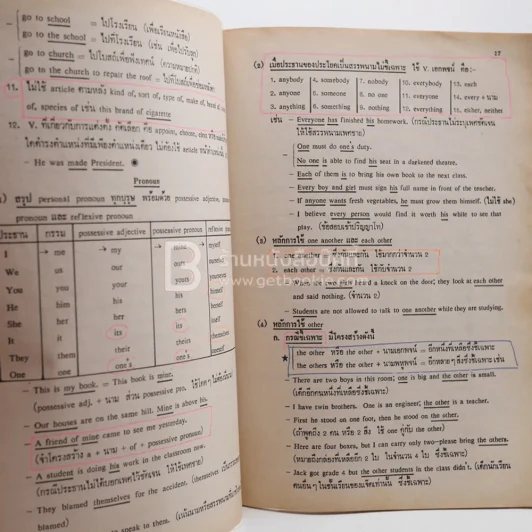 go to school = ไปโรงเรียน (เพื่อเรียนหนังสือ)
go to the school = ไปที่โรงเรียน (เช่น เพื่อไปรับลูก)
go to church = ไปโบสถ์เพื่อพิธีเทศน์
go to the church to repair the roof = ไปที่โบสถ์เพื่อซ่อม
11. ไม่ใช้ article ตามหลัง kind of, sort of, type of, make of, brand of
of, species of เช่น this brand of cigarette
12. V. ที่เกี่ยวกับการแต่งตั้ง คัดเลือก คือ appoint, choose,
– He was made President.
Pronoun
สรุป personal pronoun ทุกบุรุษ พร้อมด้วย possessive adjective,
pronoun และ reflexive pronoun
ประธาน กรรม possessive adjective possessive pronoun reflexive
I me my
We us our ours
You you your yours
He him his his
She her her
It it its its
They them their theirs
One one one's one's
– This is my book. = This book is mine.
(possessive adj. + นาม ส่วน possessive pro.
– Our houses are on the same hill. Mine is above his.
– A friend of mine came to see me yesterday.
(จำโครงสร้าง a + นาม + of + possessive pronoun)
– A student is doing his work in the classroom now.
(กรณีประธานไม่ได้บอกเพศไว้ชัดเจน ให้ใช้เพศชาย)
– They blamed themselves for the accident.
blamed)
to speak to them.
17
(2) เมื่อประธานของประโยคเป็นสรรพนามไม่ชี้เฉพาะ ใช้ V. เอกพจน์ คือ:-
1. anybody 4. somebody 7. nobody 10. everybody 13. each
2. anyone 5. someone 8. no one 11. everyone 14. every + นาม
3. anything 6. something 9. nothing 12. everything 15. either, neither
เช่น – Everyone has finished his homework. (กรณีประธานไม่ระบุเพศชัดเจน
ให้ใช้สรรพนามเพศชาย)
One must do one's duty.
No one is able to find his seat in a darkened theatre.
– Each of them is to bring his own book to the next class.
– Every boy and girl must sign his full name in front of the teacher.
– If anyone wants fresh vegetables, he must grow them himself. (ไม่ใช้ she)
– I believe every person would find it worth his while to see that
play. (ข้อสอบเข้าปริญญาโท)
(3) หลักการใช้ one another และ each other
1. one another = ซึ่งกันและกัน ใช้มากกว่าจำนวน 2
2. each other = ซึ่งกันและกัน ใช้กับจำนวน 2
เช่น – When the two men heard a knock on the door; they look at each other
and said nothing. (จำนวน 2)
– Students are not allowed to talk to one another while they are studying.
ร้านหนังสือบุ๊กกี้
www.getbookie.com
(4) หลักการใช้ other
ก. กรณีชี้เฉพาะ มีโครงสร้างดังนี้
the other หรือ the other + นามเอกพจน์ = อีกหนึ่งที่เหลือซึ่งชี้เฉพาะ
the others หรือ the other + นามพหูพจน์ = อีกหลายๆ สิ่งซึ่งชี้เฉพาะ เช่น
– There are two boys in this room; one is big and the other is small.
(เด็กอีกคนหนึ่งที่เหลือซึ่งชี้เฉพาะ)
– I have twin brothers. One is an engineer; the other is a teacher.
– First he stood on one foot, then he stood on the other.
(ถ้าพูดถึง 2 คน หรือ 2 สิ่ง ใช้ one คู่กับ the other)
– Here are four boxes, but I can carry only two–please bring the others.
(หมายถึงกล่องที่เหลืออีก 2 ใบ ในจำนวน 4 ใบ ซึ่งชี้เฉพาะ)
– Jack got grade 4 but the other students in the class didn't. (เด็กนักเรียน
คนอื่นๆ ในชั้นเรียนของแจ็คเท่านั้น ซึ่งชี้เฉพาะ)